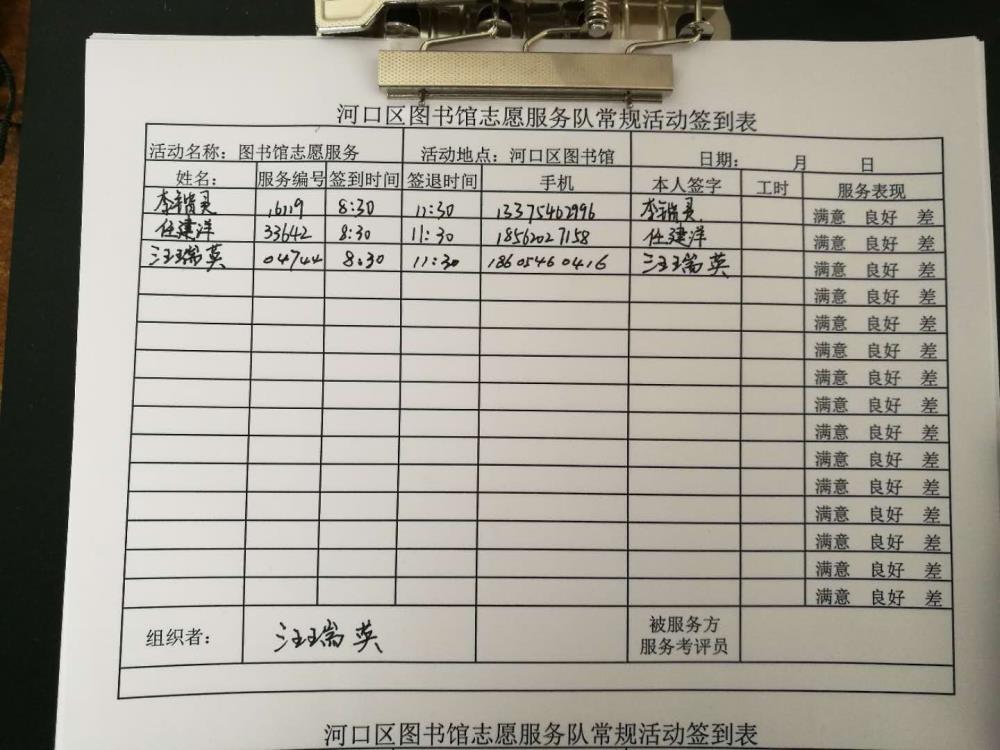 河口区图书馆志愿服务队常规活动签到表
活动名称：图书馆志愿服务 活动地点：河口区图书馆 日期： 月 日
姓名： 服务编号 签到时间 签退时间 手机 本人签字 工时 服务表现
16119 8:30 11:30 13375462996 满意 良好 差
任建洋 33642 8:30 11:30 18562027158 任建洋 满意 良好 差
汪瑞英 04744 8:30 11:30 18605460416 汪瑞英 满意 良好 差
满意 良好 差
满意 良好 差
满意 良好 差
满意 良好 差
满意 良好 差
满意 良好 差
满意 良好 差
满意 良好 差
满意 良好 差
满意 良好 差
满意 良好 差
满意 良好 差
组织者： 汪瑞英 被服务方
服务考评员
河口区图书馆志愿服务队常规活动签到表